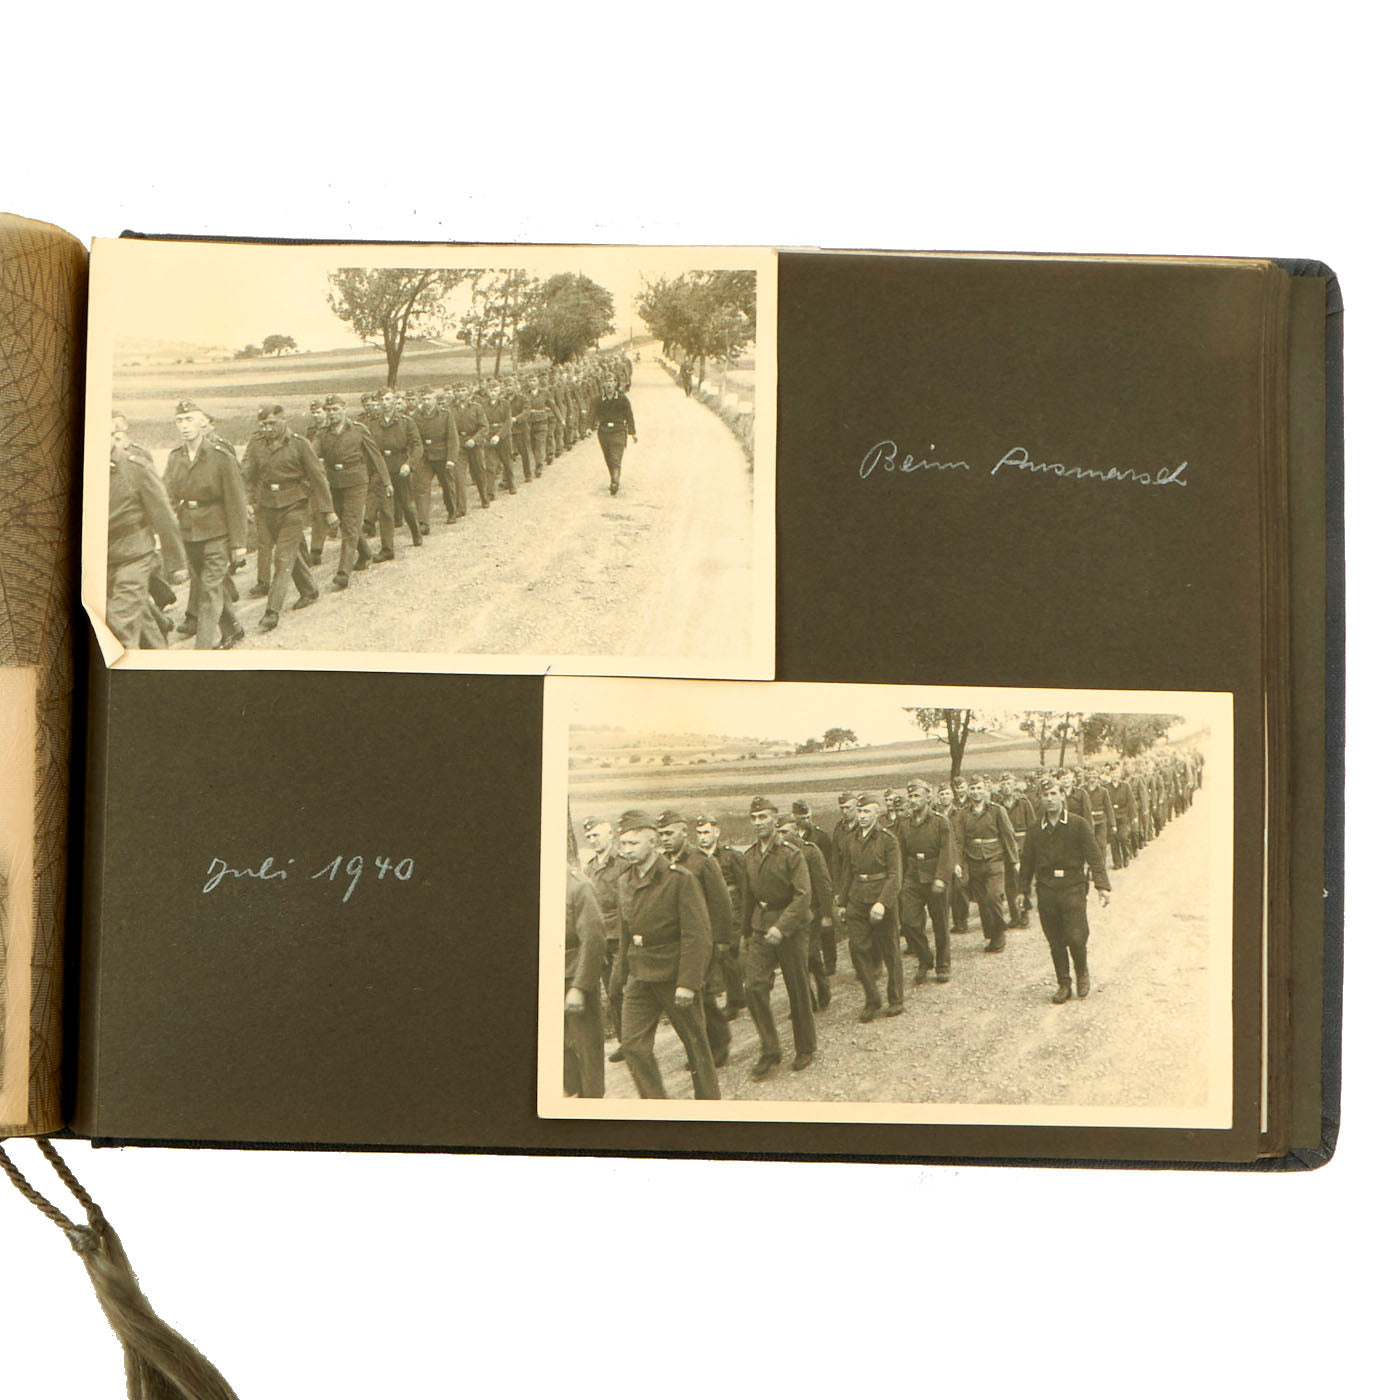 Beim Ausmarsch
Juli 1940